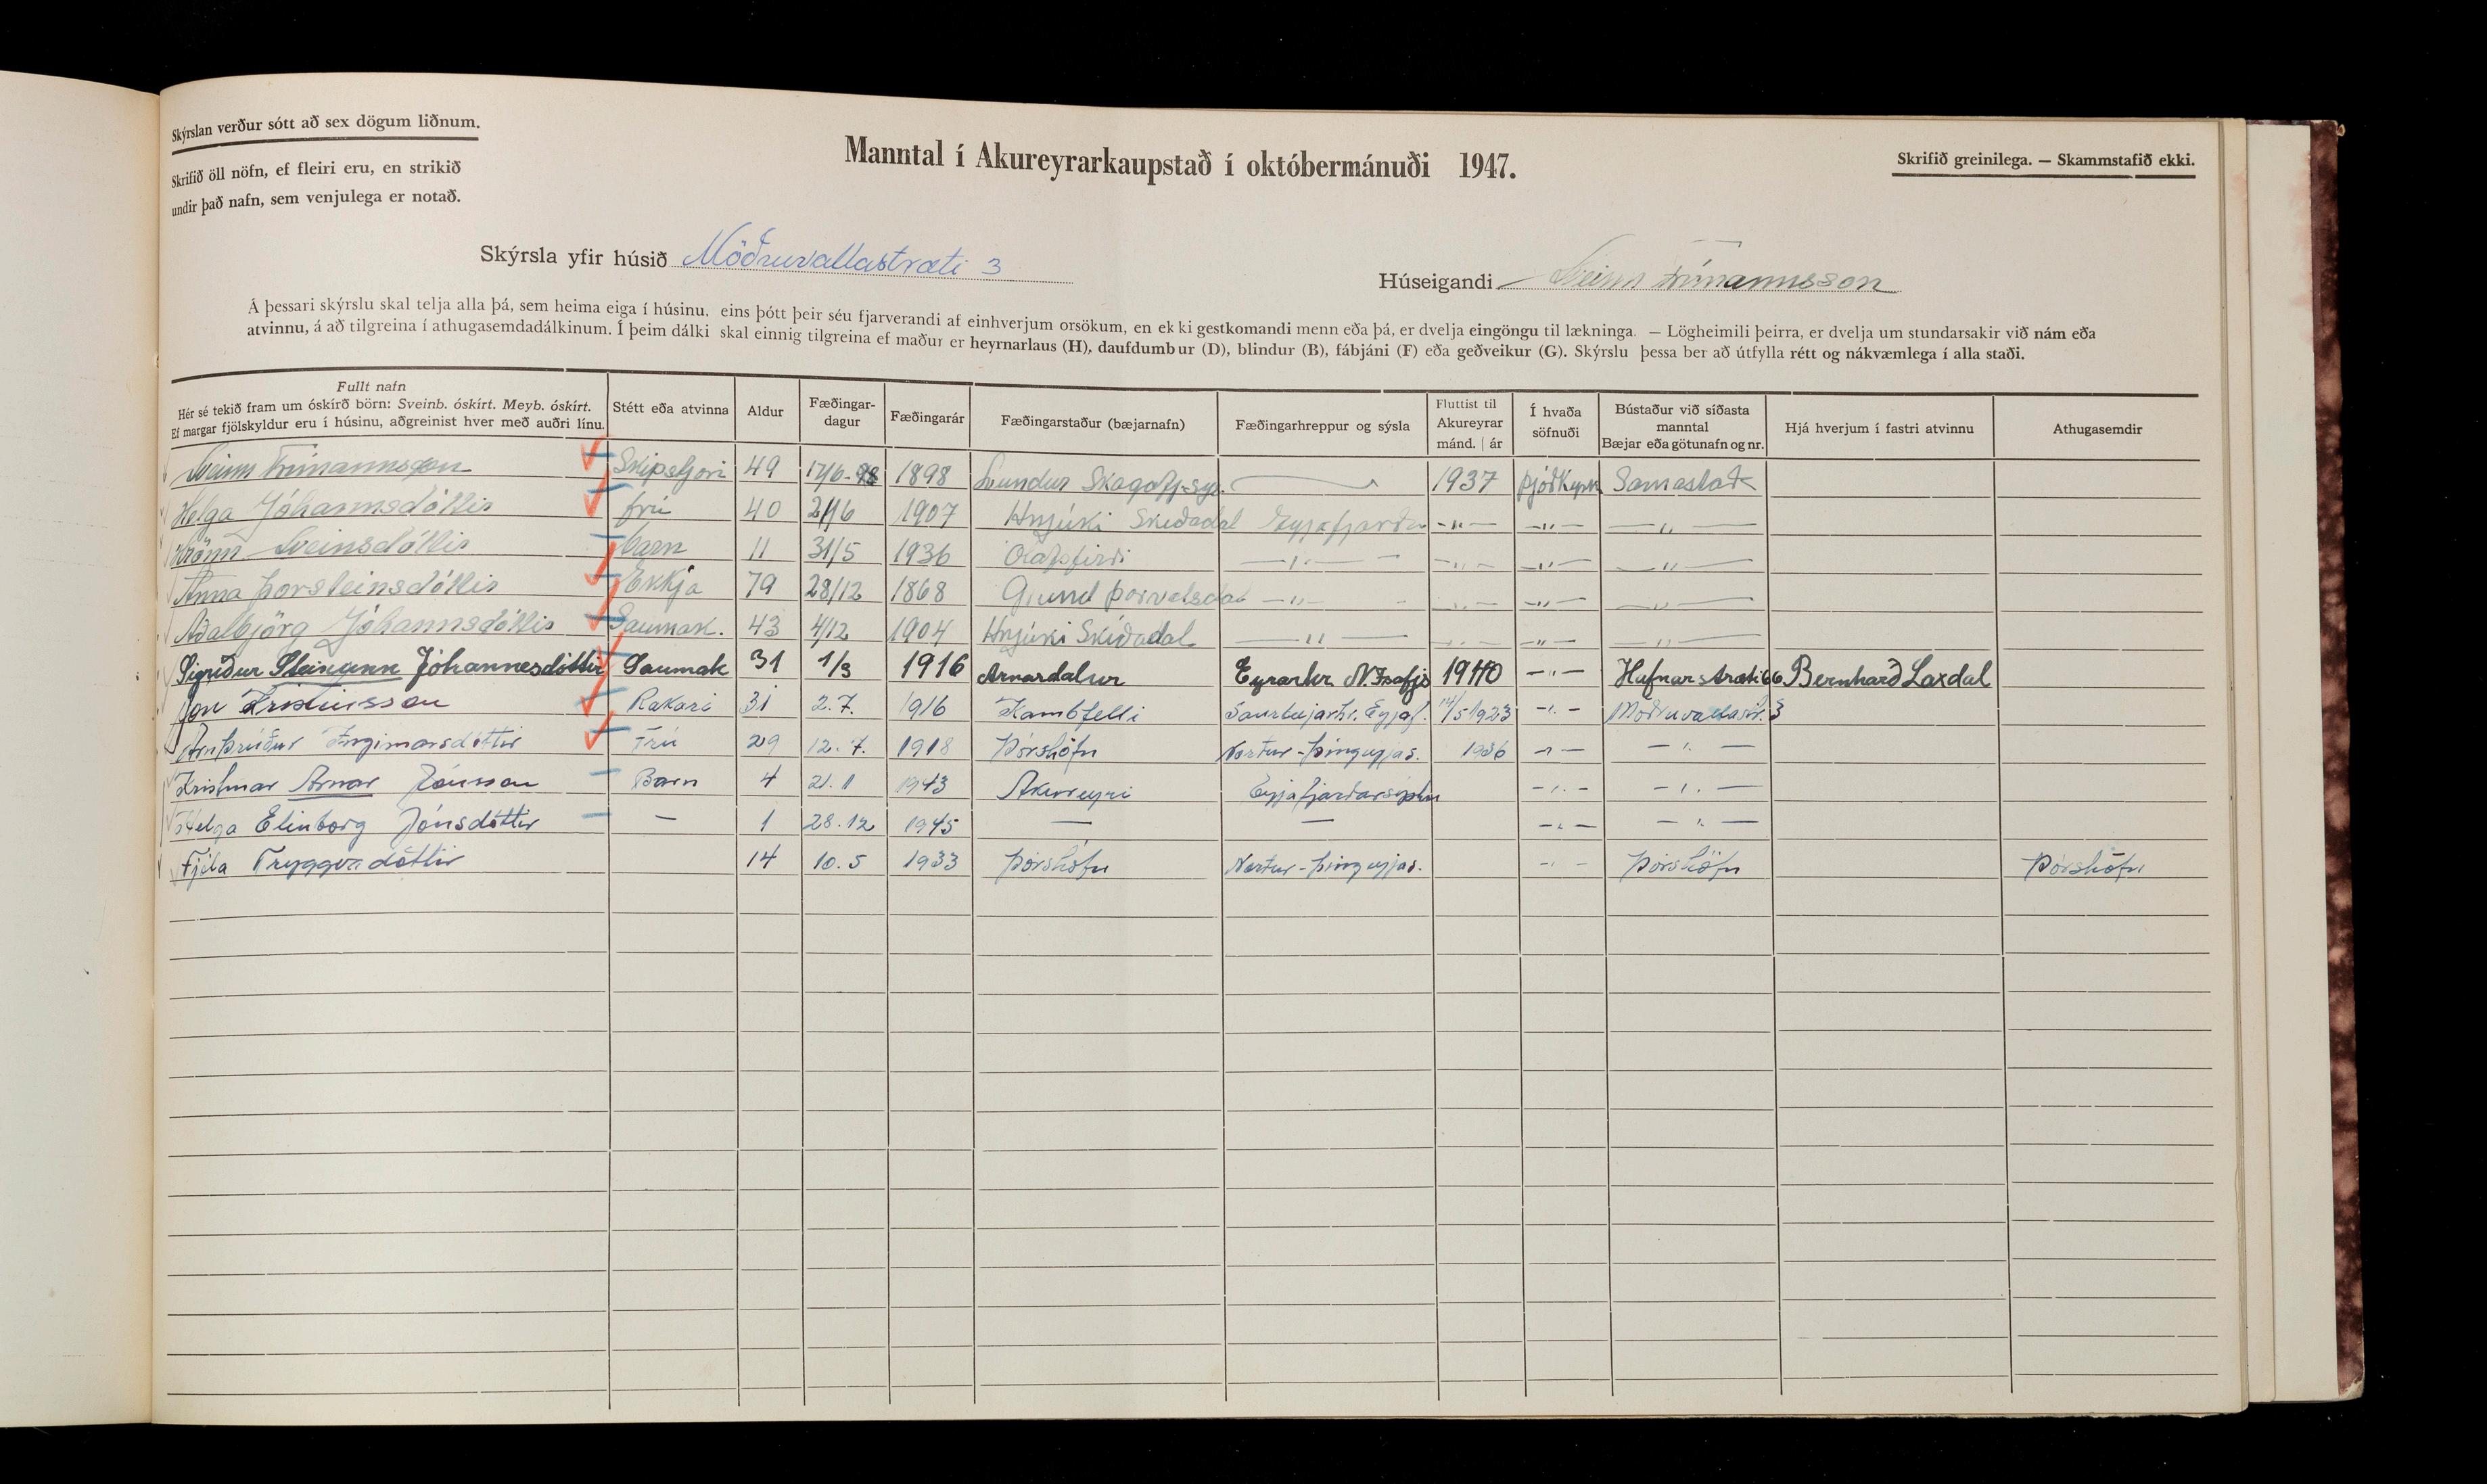 Skýrslan verður sótt að sex dögum liðnum.
Skrifið öll nöfn, ef fleiri eru, en strikið
undir það nafn, sem venjulega er notað.
Manntal í Akureyrarkaupstað í októbermánuði 1947.
Skrifið greinilega. — Skammstafið ekki.
Skýrsla yfir húsið Möðruvallastræti 3
Húseigandi Sveinn Frímannsson
Á þessari skýrslu skal telja alla þá, sem heima eiga í húsinu, eins þótt þeir séu fjarverandi af einhverjum orsökum, en ekki gestkomandi menn eða þá, er dvelja eingöngu til lækninga. — Lögheimili þeirra, er dvelja um stundarsakir við nám eða
atvinnu, á að tilgreina í athugasemdadálkinum. Í þeim dálki skal einnig tilgreina ef maður er heyrnarlaus (H), daufdumbur (D), blindur (B), fábjáni (F) eða geðveikur (G). Skýrslu þessa ber að útfylla rétt og nákvæmlega í alla staði.
Fullt nafn
Hér sé tekið fram um óskírð börn: Sveinb. óskírt. Meyb. óskírt.
Ef margar fjölskyldur eru í húsinu, aðgreinist hver með auðri línu.
Stétt eða atvinna
Aldur
Fæðingar-
dagur
Fæðingarár
Fæðingarstaður (bæjarnafn)
Fæðingarhreppur og sýsla
Fluttist til
Akureyrar
mánd. | ár
Í hvaða
söfnuði
Bústaður við síðasta
manntal
Bæjar eða götunafn og nr.
Hjá hverjum í fastri atvinnu
Athugasemdir
Sveinn Frímannsson Skipstjori 49 17/6-98 1898 Lundur Skagafj-sys. 1937 Þjóðkyrk Samastað
Helga Jóhannsdóttir frú 40 21/6 1907 Hnjúki Skíðadal Eyjafjarðar —"— —"— —"—
Hrönn Sveinsdóttir barn 11 31/5 1936 Ólafsfirði —"— —"— —"— —"—
Anna Þorsteinsdóttir Ekkja 79 28/12 1868 Grund Þorvalsdal —"— —"— —"— —"—
Aðalbjörg Jóhannsdóttir Saumak. 43 4/12 1904 Hnjúki Skíðadal —"— —"— —"— —"—
Sigríður Steinunn Jóhannesdóttir Saumak 31 1/3 1916 Arnardalur Eyrarhr N.Ísafjs 1940 —"— Hafnarstræti 66 Bernharð Laxdal
Jón Kristinsson Rakari 31 2.7. 1916 Kambfelli Saurbæjarhr. Eyjaf. 14/5 1923 —"— Möðruvallastr. 3
Arnþrúður Ingimarsdóttir Frú 29 12.7. 1918 Þórshöfn Norður-Þingeyjas. 1936 —"— —"—
Kristinar Arnar Jónsson Barn 4 21.11 1943 Akureyri Eyjafjarðarsýslu —"— —"—
Helga Elinborg Jónsdóttir — 1 28.12 1945 — — —"— —"—
Fjóla Tryggvadóttir 14 10.5 1933 Þórshöfn Norður-Þingeyjas. —"— Þórshöfn Þórshöfn